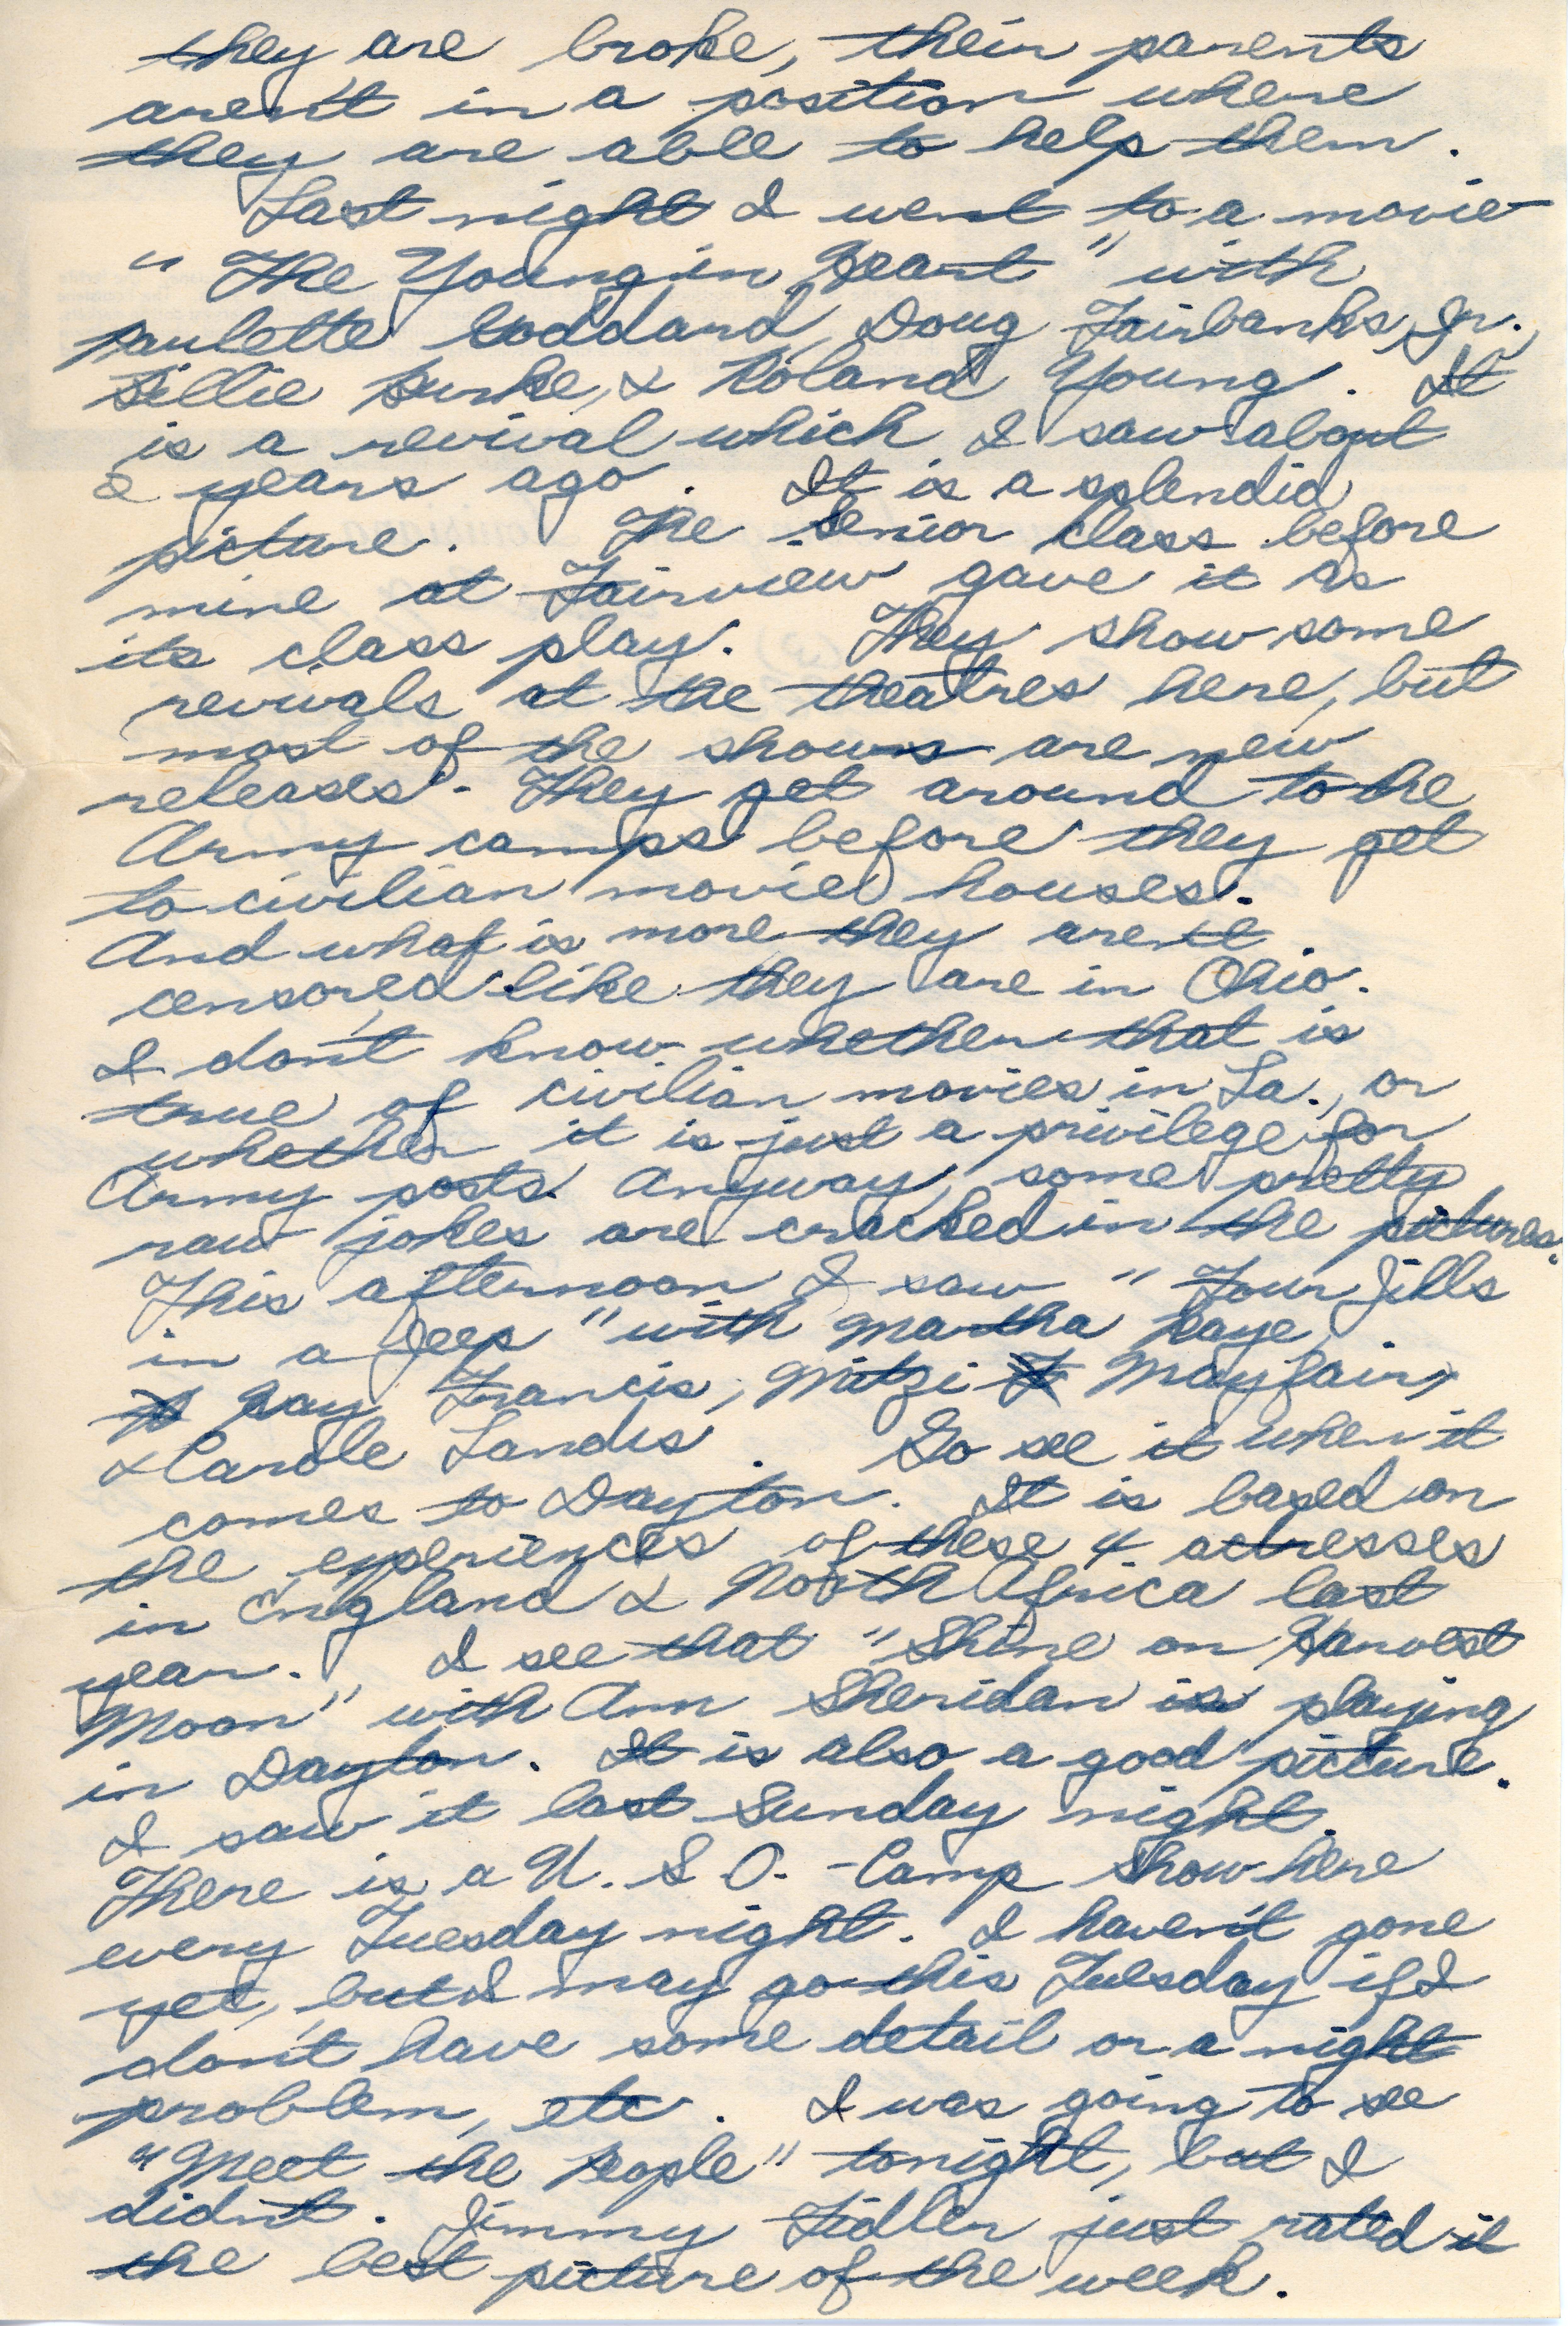 they are broke, their parents
aren't in a position where
they are able to help them.
Last night I went to a movie
"The Young in Heart" with
Paulette Goddard, Doug Fairbanks, Jr.,
Billie Burke, & Roland Young. It
is a revival which I saw about
2 years ago. It is a splendid
picture. The senior class before
mine at Fairview gave it as
its class play. They show some
revivals at the theatres here, but
most of the shows are new
releases. They get around to the
Army camps before they get
to civilian movie houses.
And what is more they aren't
censored like they are in Ohio.
I don't know whether that is
true of civilian movies in La., or
whether it is just a privilege for
Army posts. Anyway, some pretty
raw jokes are cracked in the pictures.
This afternoon I saw "Four Jills
in a Jeep" with Martha Raye,
Kay Francis, Mitzi Mayfair,
& Carole Landis. Go see it when it
comes to Dayton. It is based on
the experiences of these 4 actresses
in England & North Africa last
year. I see that "Shine on Harvest
Moon" with Ann Sheridan is playing
in Dayton. It is also a good picture.
I saw it last Sunday night.
There is a U.S.O. - Camp Show here
every Tuesday night. I haven't gone
yet, but I may go this Tuesday if I
don't have some detail or a night
problem, etc. I was going to see
"Meet the People" tonight, but I
didn't. Jimmy Fidler just rated it
the best picture of the week.